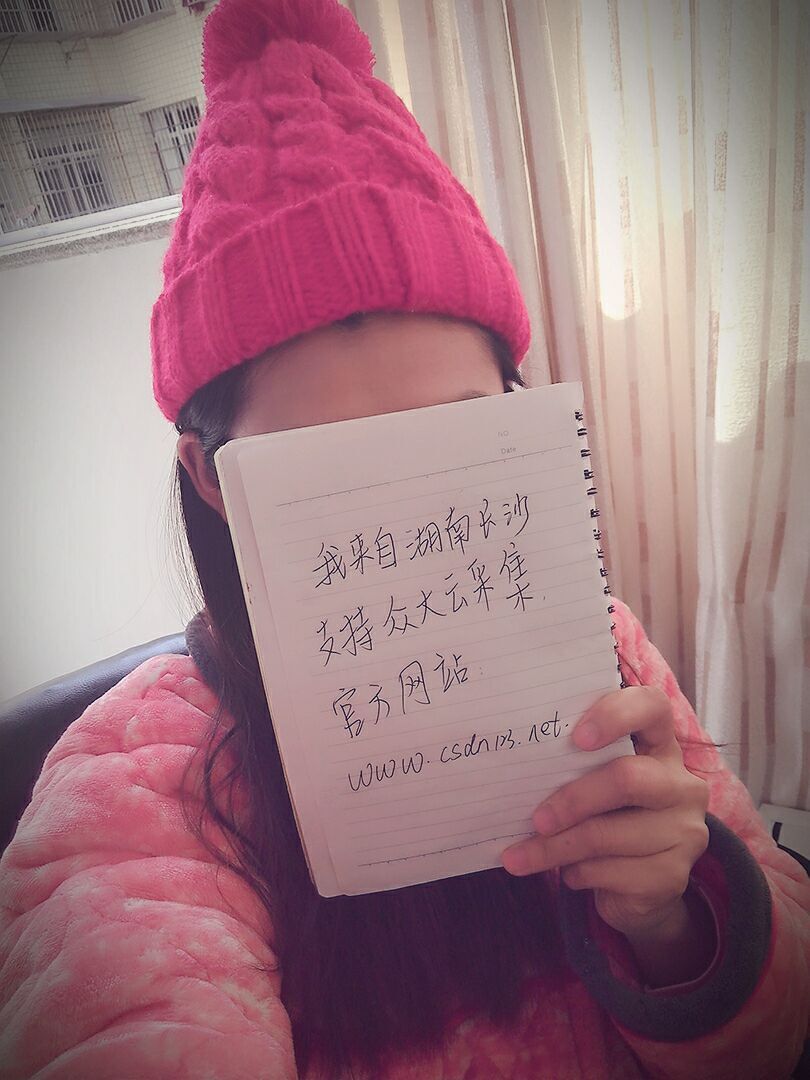 NO
Date
我来自湖南长沙
支持众大云采集
官方网站:
www.csdn123.net.